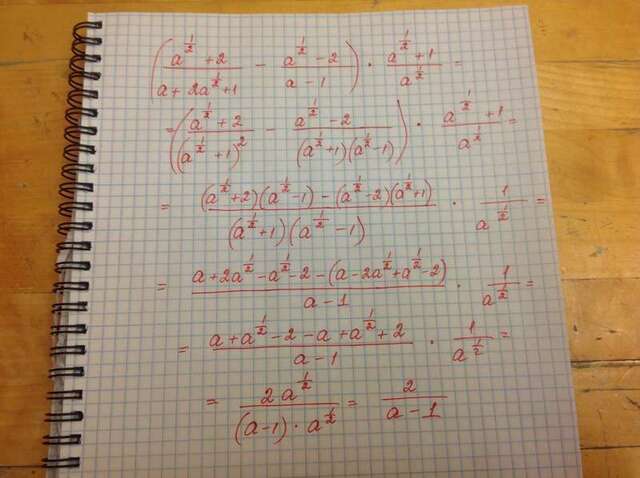 (a^(1/2) + 2)/(a + 2a^(1/2) + 1) - (a^(1/2) - 2)/(a - 1)) · (a^(1/2) + 1)/a^(1/2) =
= ((a^(1/2) + 2)/(a^(1/2) + 1)^2 - (a^(1/2) - 2)/((a^(1/2) + 1)(a^(1/2) - 1))) · (a^(1/2) + 1)/a^(1/2) =
= ((a^(1/2) + 2)(a^(1/2) - 1) - (a^(1/2) - 2)(a^(1/2) + 1))/((a^(1/2) + 1)(a^(1/2) - 1)) · 1/a^(1/2) =
= (a + 2a^(1/2) - a^(1/2) - 2 - (a - 2a^(1/2) + a^(1/2) - 2))/(a - 1) · 1/a^(1/2) =
= (a + a^(1/2) - 2 - a + a^(1/2) + 2)/(a - 1) · 1/a^(1/2) =
= 2a^(1/2)/((a - 1) · a^(1/2)) = 2/(a - 1)